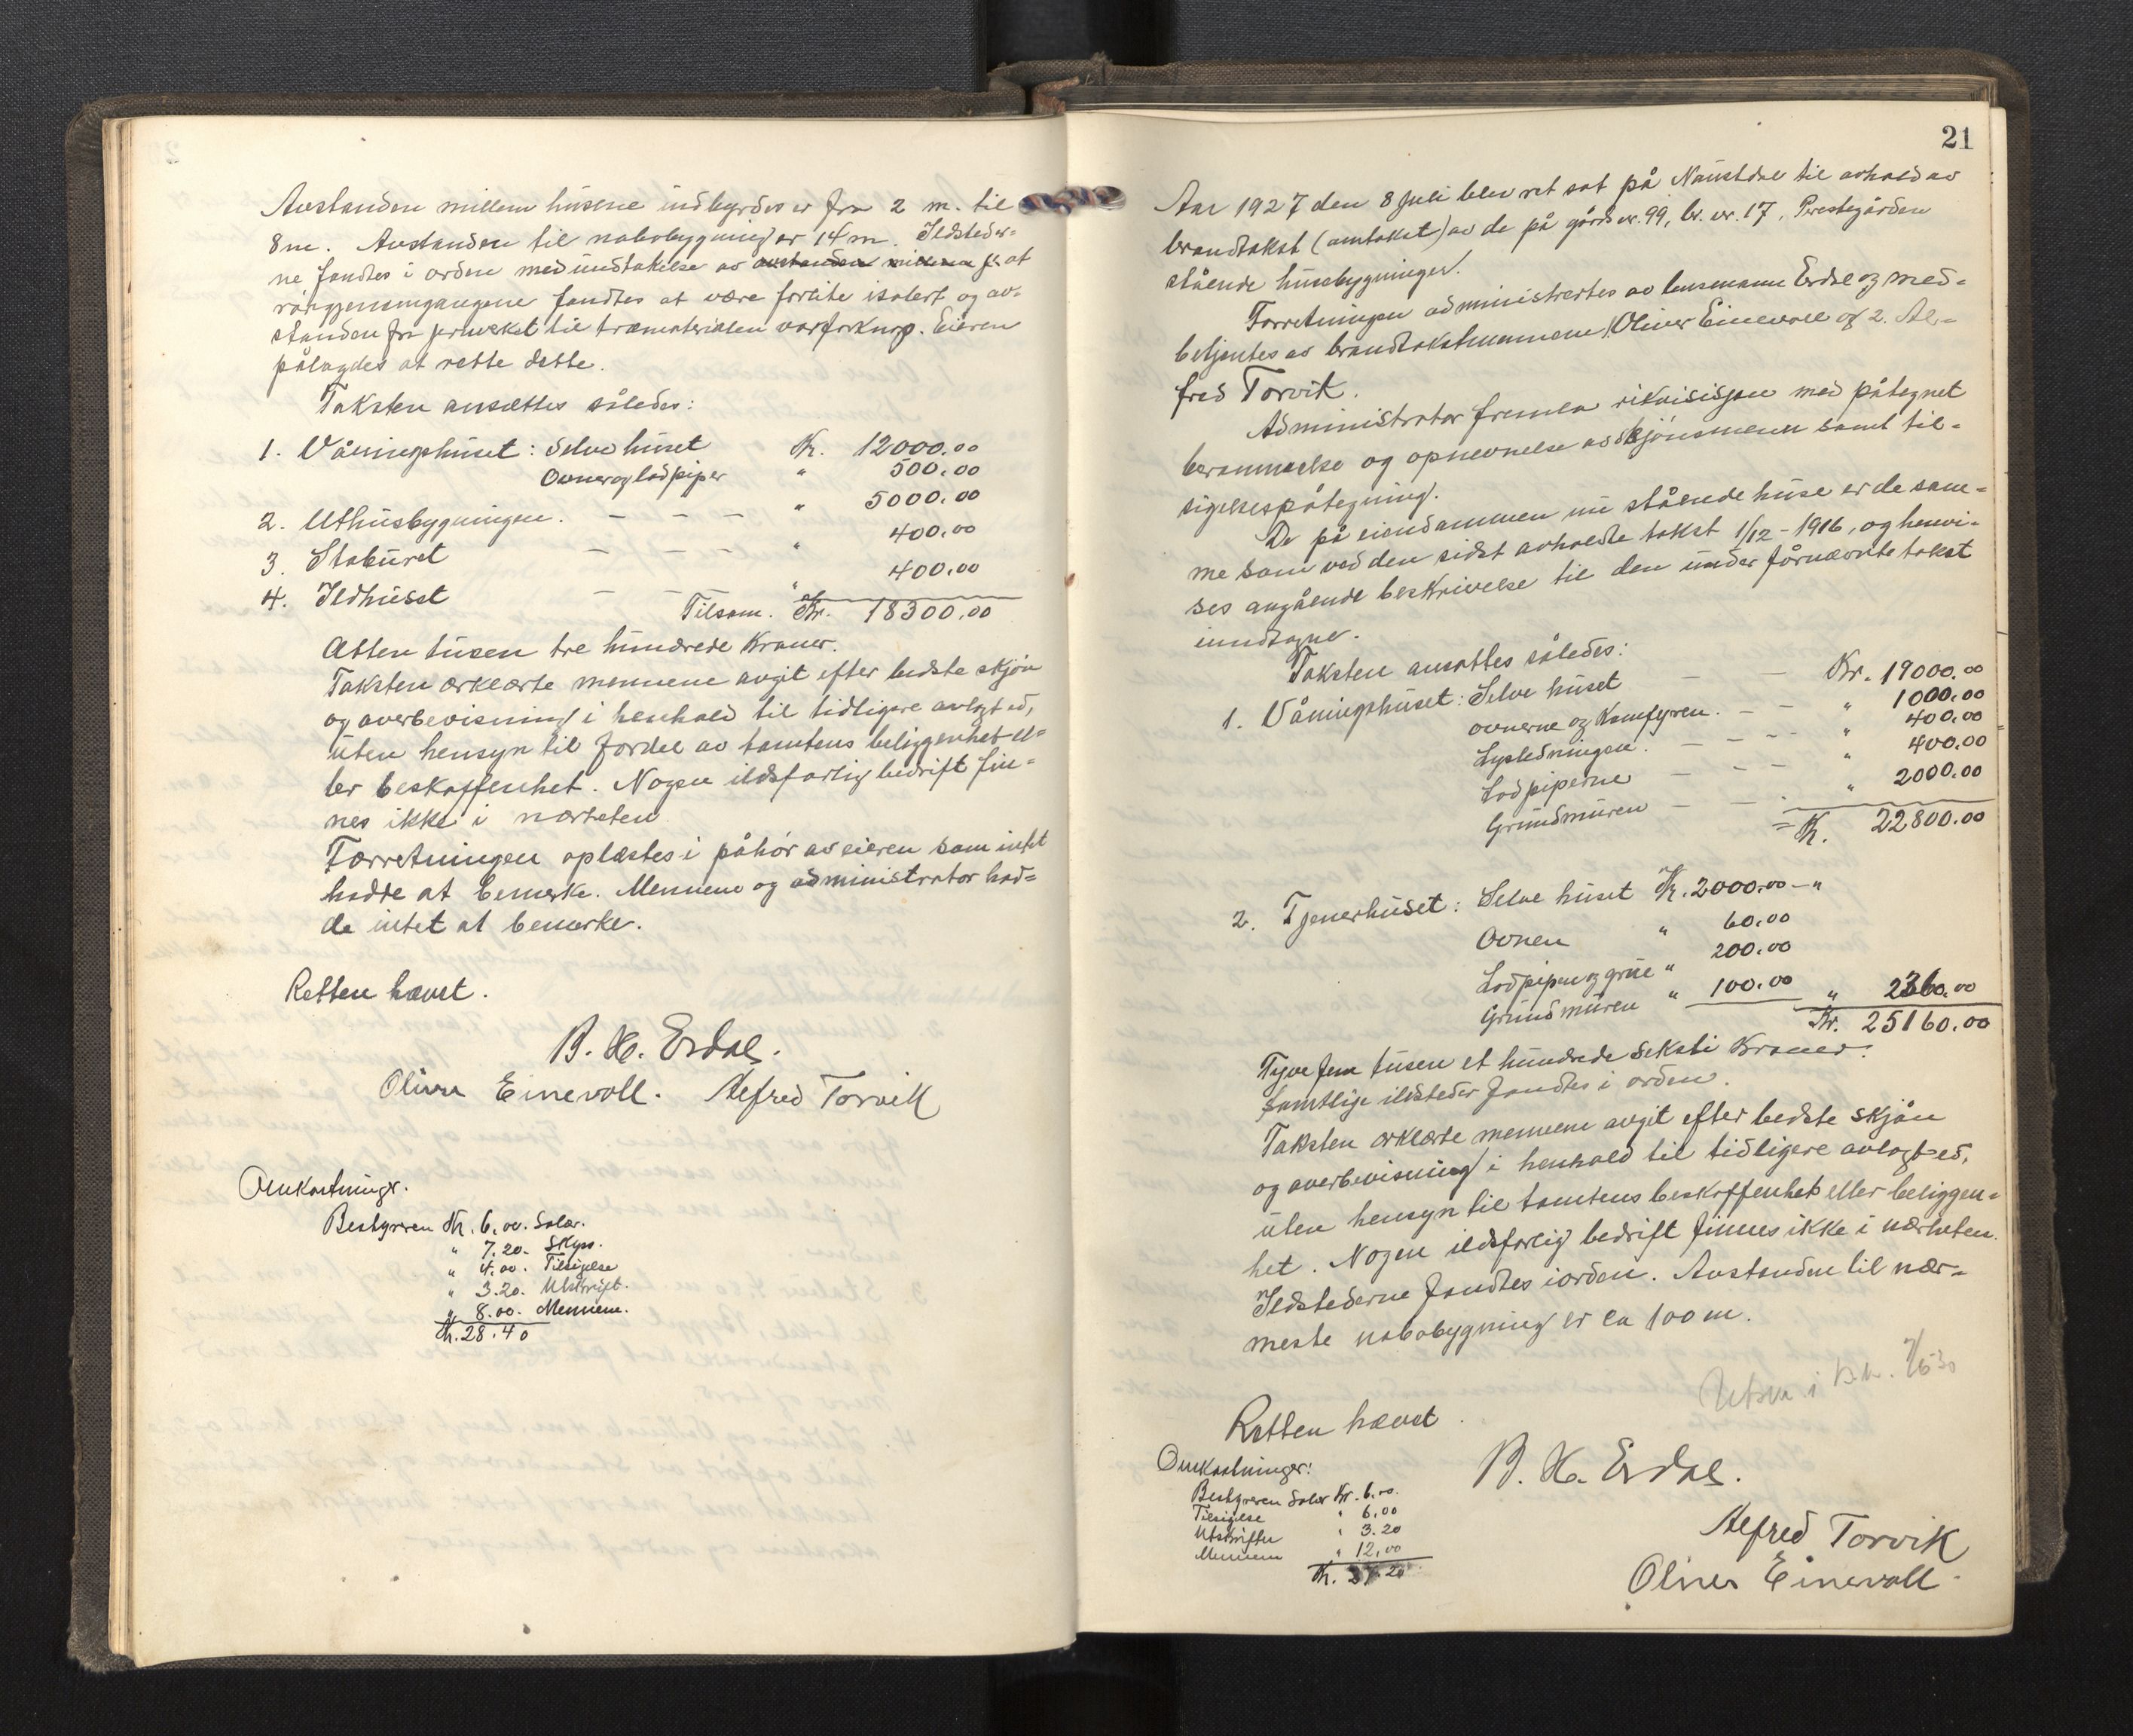 Avstanden millem husene indbyrdes er fra 2 m. til
8 m. Avstanden til nabobygning er 14 m. Ildsteder-
ne fandtes i orden med undtakelse av avstanden millem at
rørgjennemgangene fandtes at være forlite isolert og av-
standen fra jernverket til træmaterialen var forknap. Eieren
pålagdes at rette dette.
Taksten ansættes således:
1. Våningshuset: Selve huset Kr. 12000.00
Ovner og lodpiper " 500.00
2. Uthusbygningen. — — — " 5000.00
3. Staburet — — — " 400.00
4. Ildhuset — — — " 400.00
Tilsam. Kr. 18300.00
Atten tusen tre hundrede Kroner.
Taksten erklærte mennene avgit efter bedste skjøn
og overbevisning i henhold til tidligere avlagt ed,
uten hensyn til fordel av tomtens beliggenhet el-
ler beskaffenhet. Nogen ildsfarlig bedrift fin-
nes ikke i nærheten
Forretningen oplæstes i påhør av eieren som intet
hadde at bemerke. Mennene og administrator had-
de intet at bemerke.
Retten hævet.
B. H. Erdal.
Oliver Einevoll. Alfred Torvik
Omkostninger.
Bestyreren Kr. 6.00. Salær.
" 7.20. Skyss.
" 4.00. Tilsigelse
" 3.20. Utskrift.
" 8.00. Mennene.
Kr. 28.40
21
Aar 1927 den 8 Juli blev ret sat på Naustdal til avhold av
brandtakst (omtakst) av de på gårds nr. 99, br. nr. 17, Prestegården
stående husebygninger.
Forretningen administrertes av lensmann Erdal og med-
betjentes av brandtakstmennene 1. Oliver Einevoll og 2. Al-
fred Torvik.
Administrator fremla rikvisisjon med påtegnet
berammelse og opnevnelse av skjønsmenn samt til-
sigelsespåtegning.
De på eiendommen nu stående huse er de sam-
me som ved den sidst avholdte takst 1/12-1916, og henvi-
ses angående beskrivelse til den under fornævnte takst
inndtagne.
Taksten ansattes således:
1. Våningshuset: Selve huset — — Kr. 19000.00
ovnerne og Komfyren. — — " 1000.00
Lysledningen. — — — " 400.00
Lodpiperne — — — " 400.00
Grundmuren — — . " 2000.00
= Kr. 22800.00
2. Tjenerhuset: Selve huset Kr. 2000.00 — "
Ovnen " 60.00
Lodpipen og grue " 200.00
Grundmuren " 100.00 " 2360.00
Kr. 25160.00
Tyve fem tusen et hundrede seksti Kroner.
Samtlige ildsteder fandtes i orden.
Taksten erklærte mennene avgit efter bedste skjøn
og overbevisning i henhold til tidligere avlagt ed,
uten hensyn til tomtens beskaffenhet eller beliggen-
het. Nogen ildsfarlig bedrift finnes ikke i nærheten.
Ildstederne fandtes i orden. Avstanden til nær-
meste nabobygning er ca 100 m.
Retten hævet.
B. H. Erdal.
Alfred Torvik
Oliver Einevoll.
Omkostninger:
Bestyreren Salær Kr. 6.00.
Tilsigelse " 6,00
Utskrifter " 3.20
Mennene " 12,00
Kr. 27.20